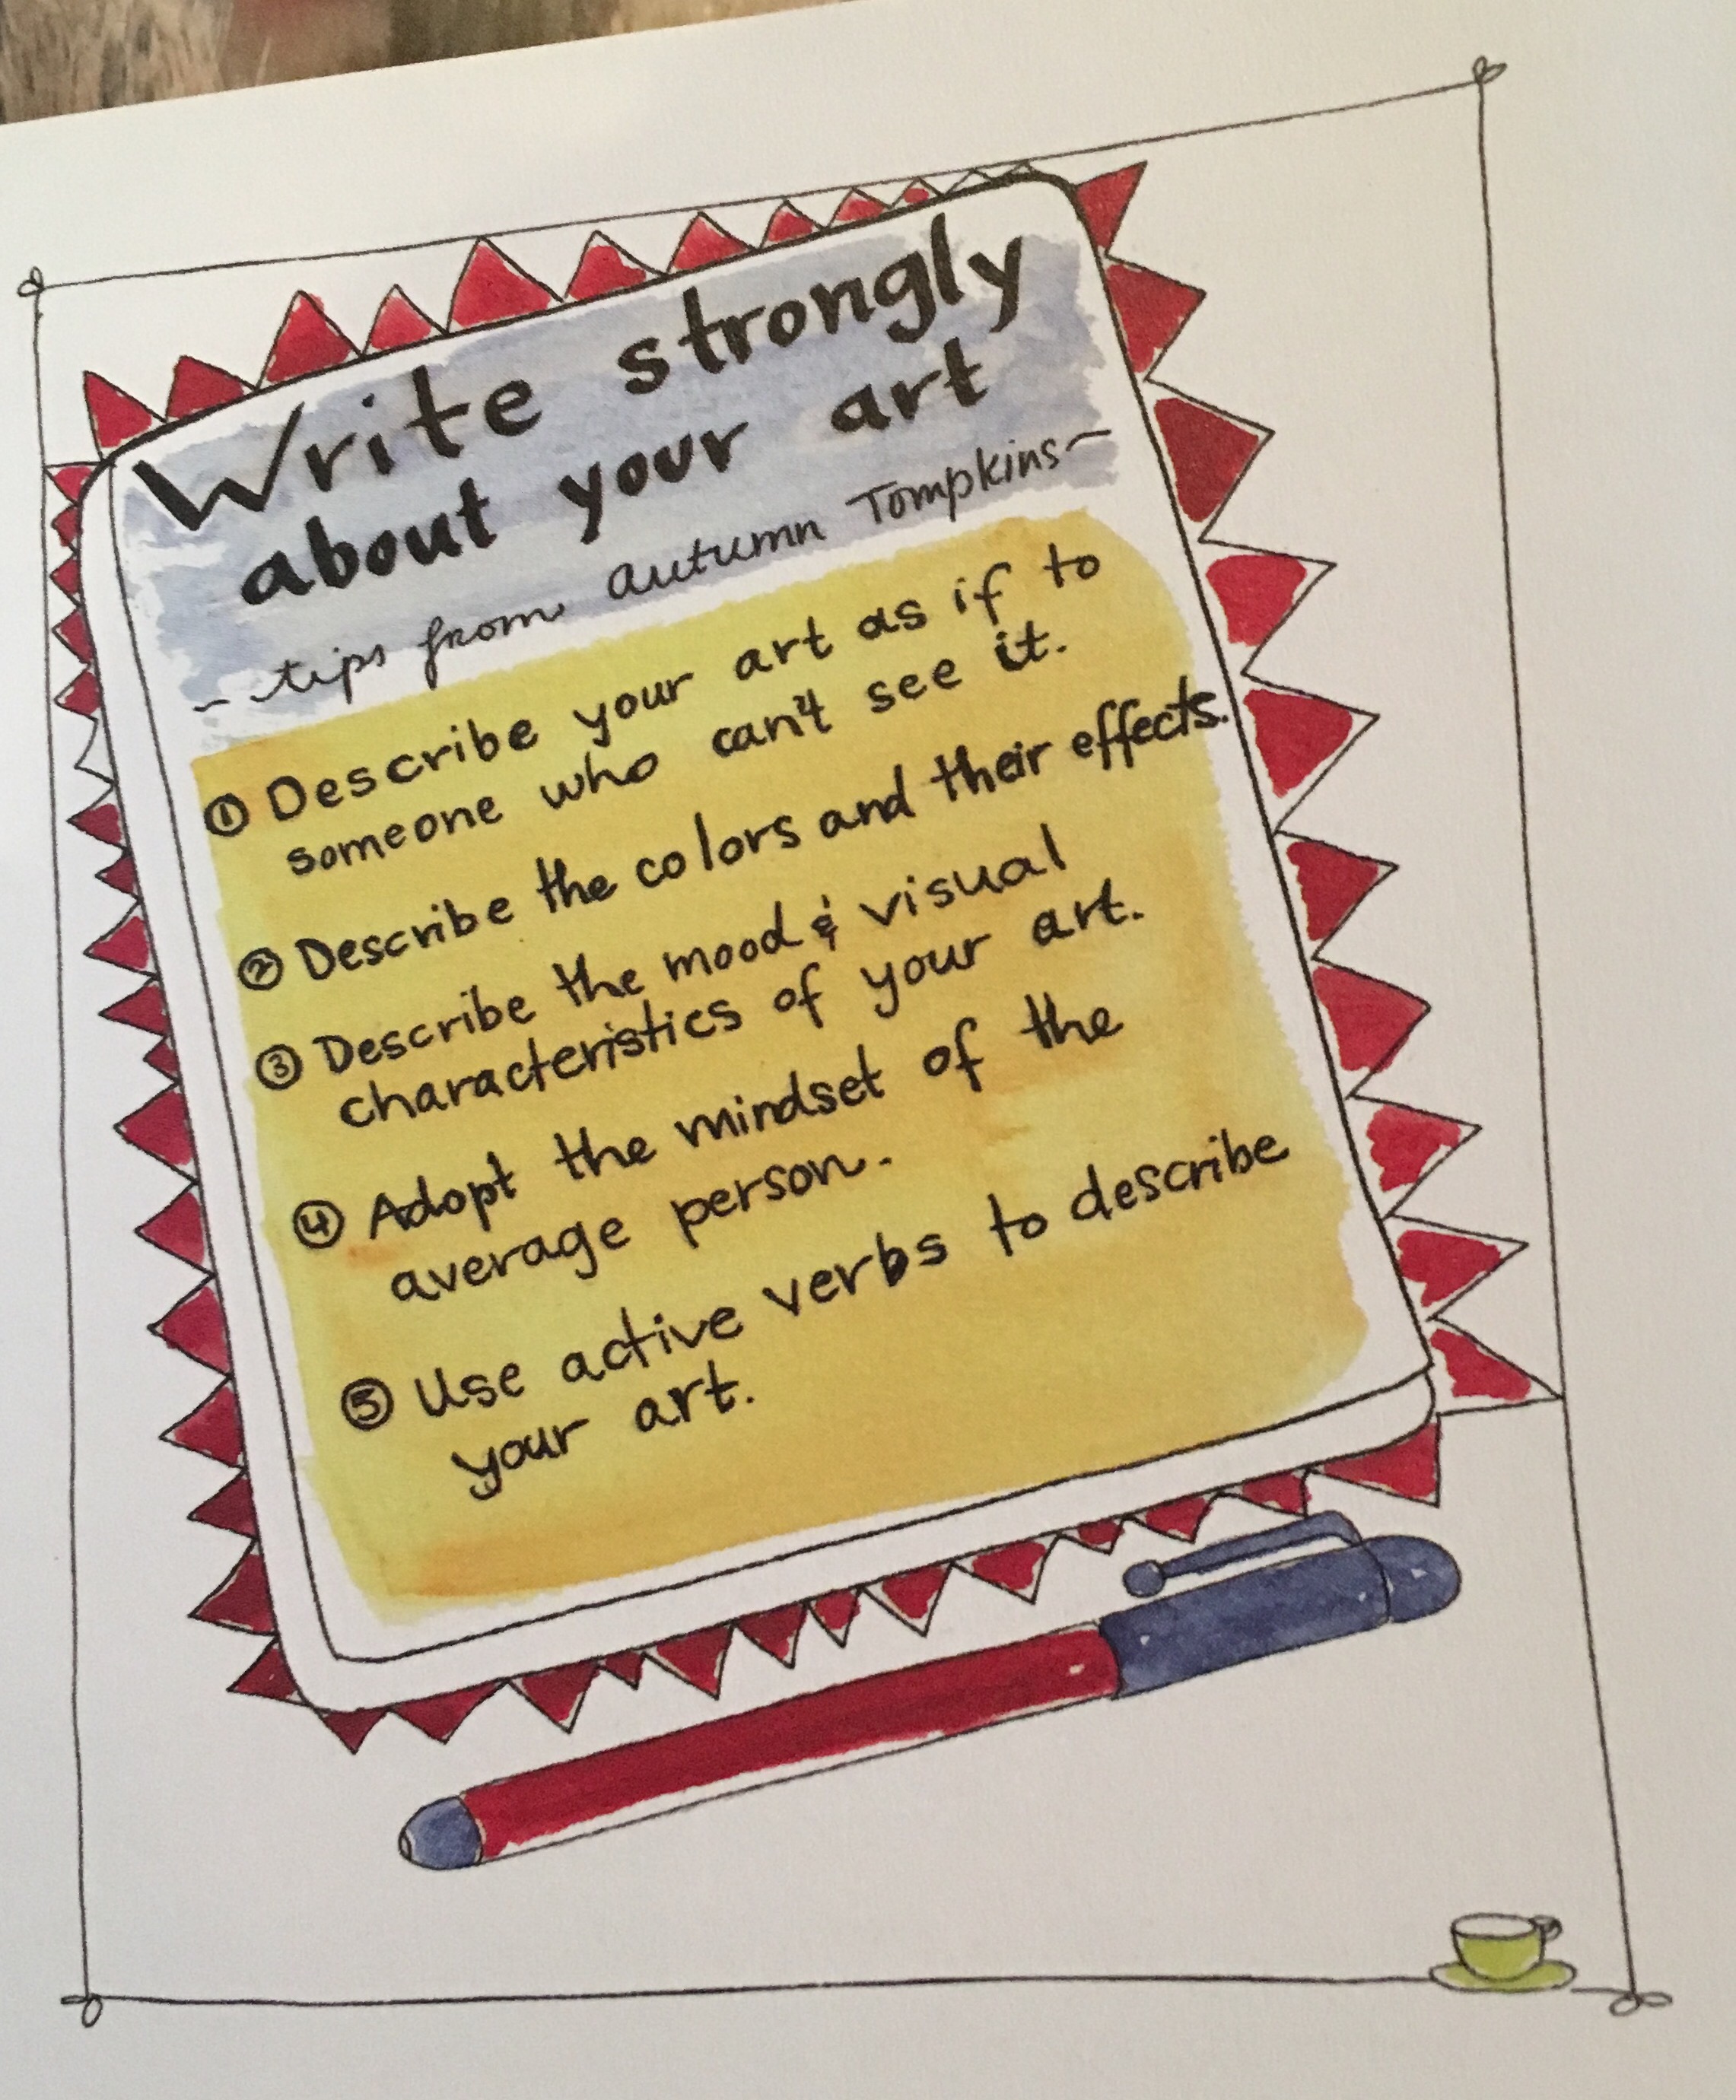 Write strongly
about your art
- tips from autumn Tompkins -
① Describe your art as if to
someone who can't see it.
② Describe the colors and their effects.
③ Describe the mood & visual
characteristics of your art.
④ Adopt the mindset of the
average person.
⑤ Use active verbs to describe
your art.